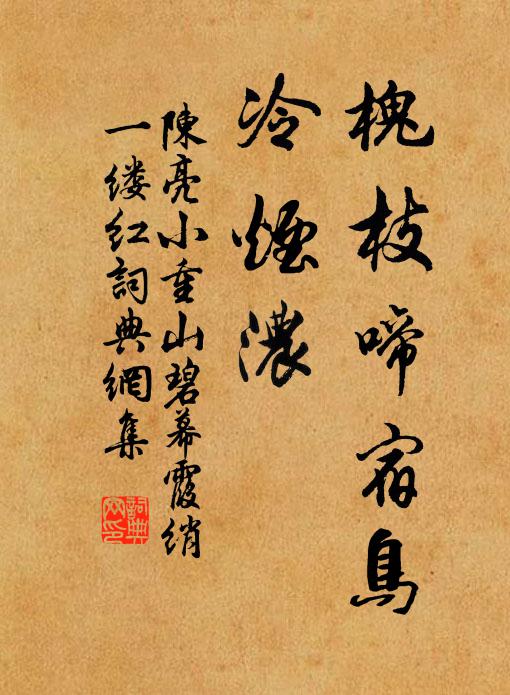 槐枝啼宿鳥
冷煙濃
陳亮小重山碧幕霞绡
一缕红詞典網集
詞典
网印